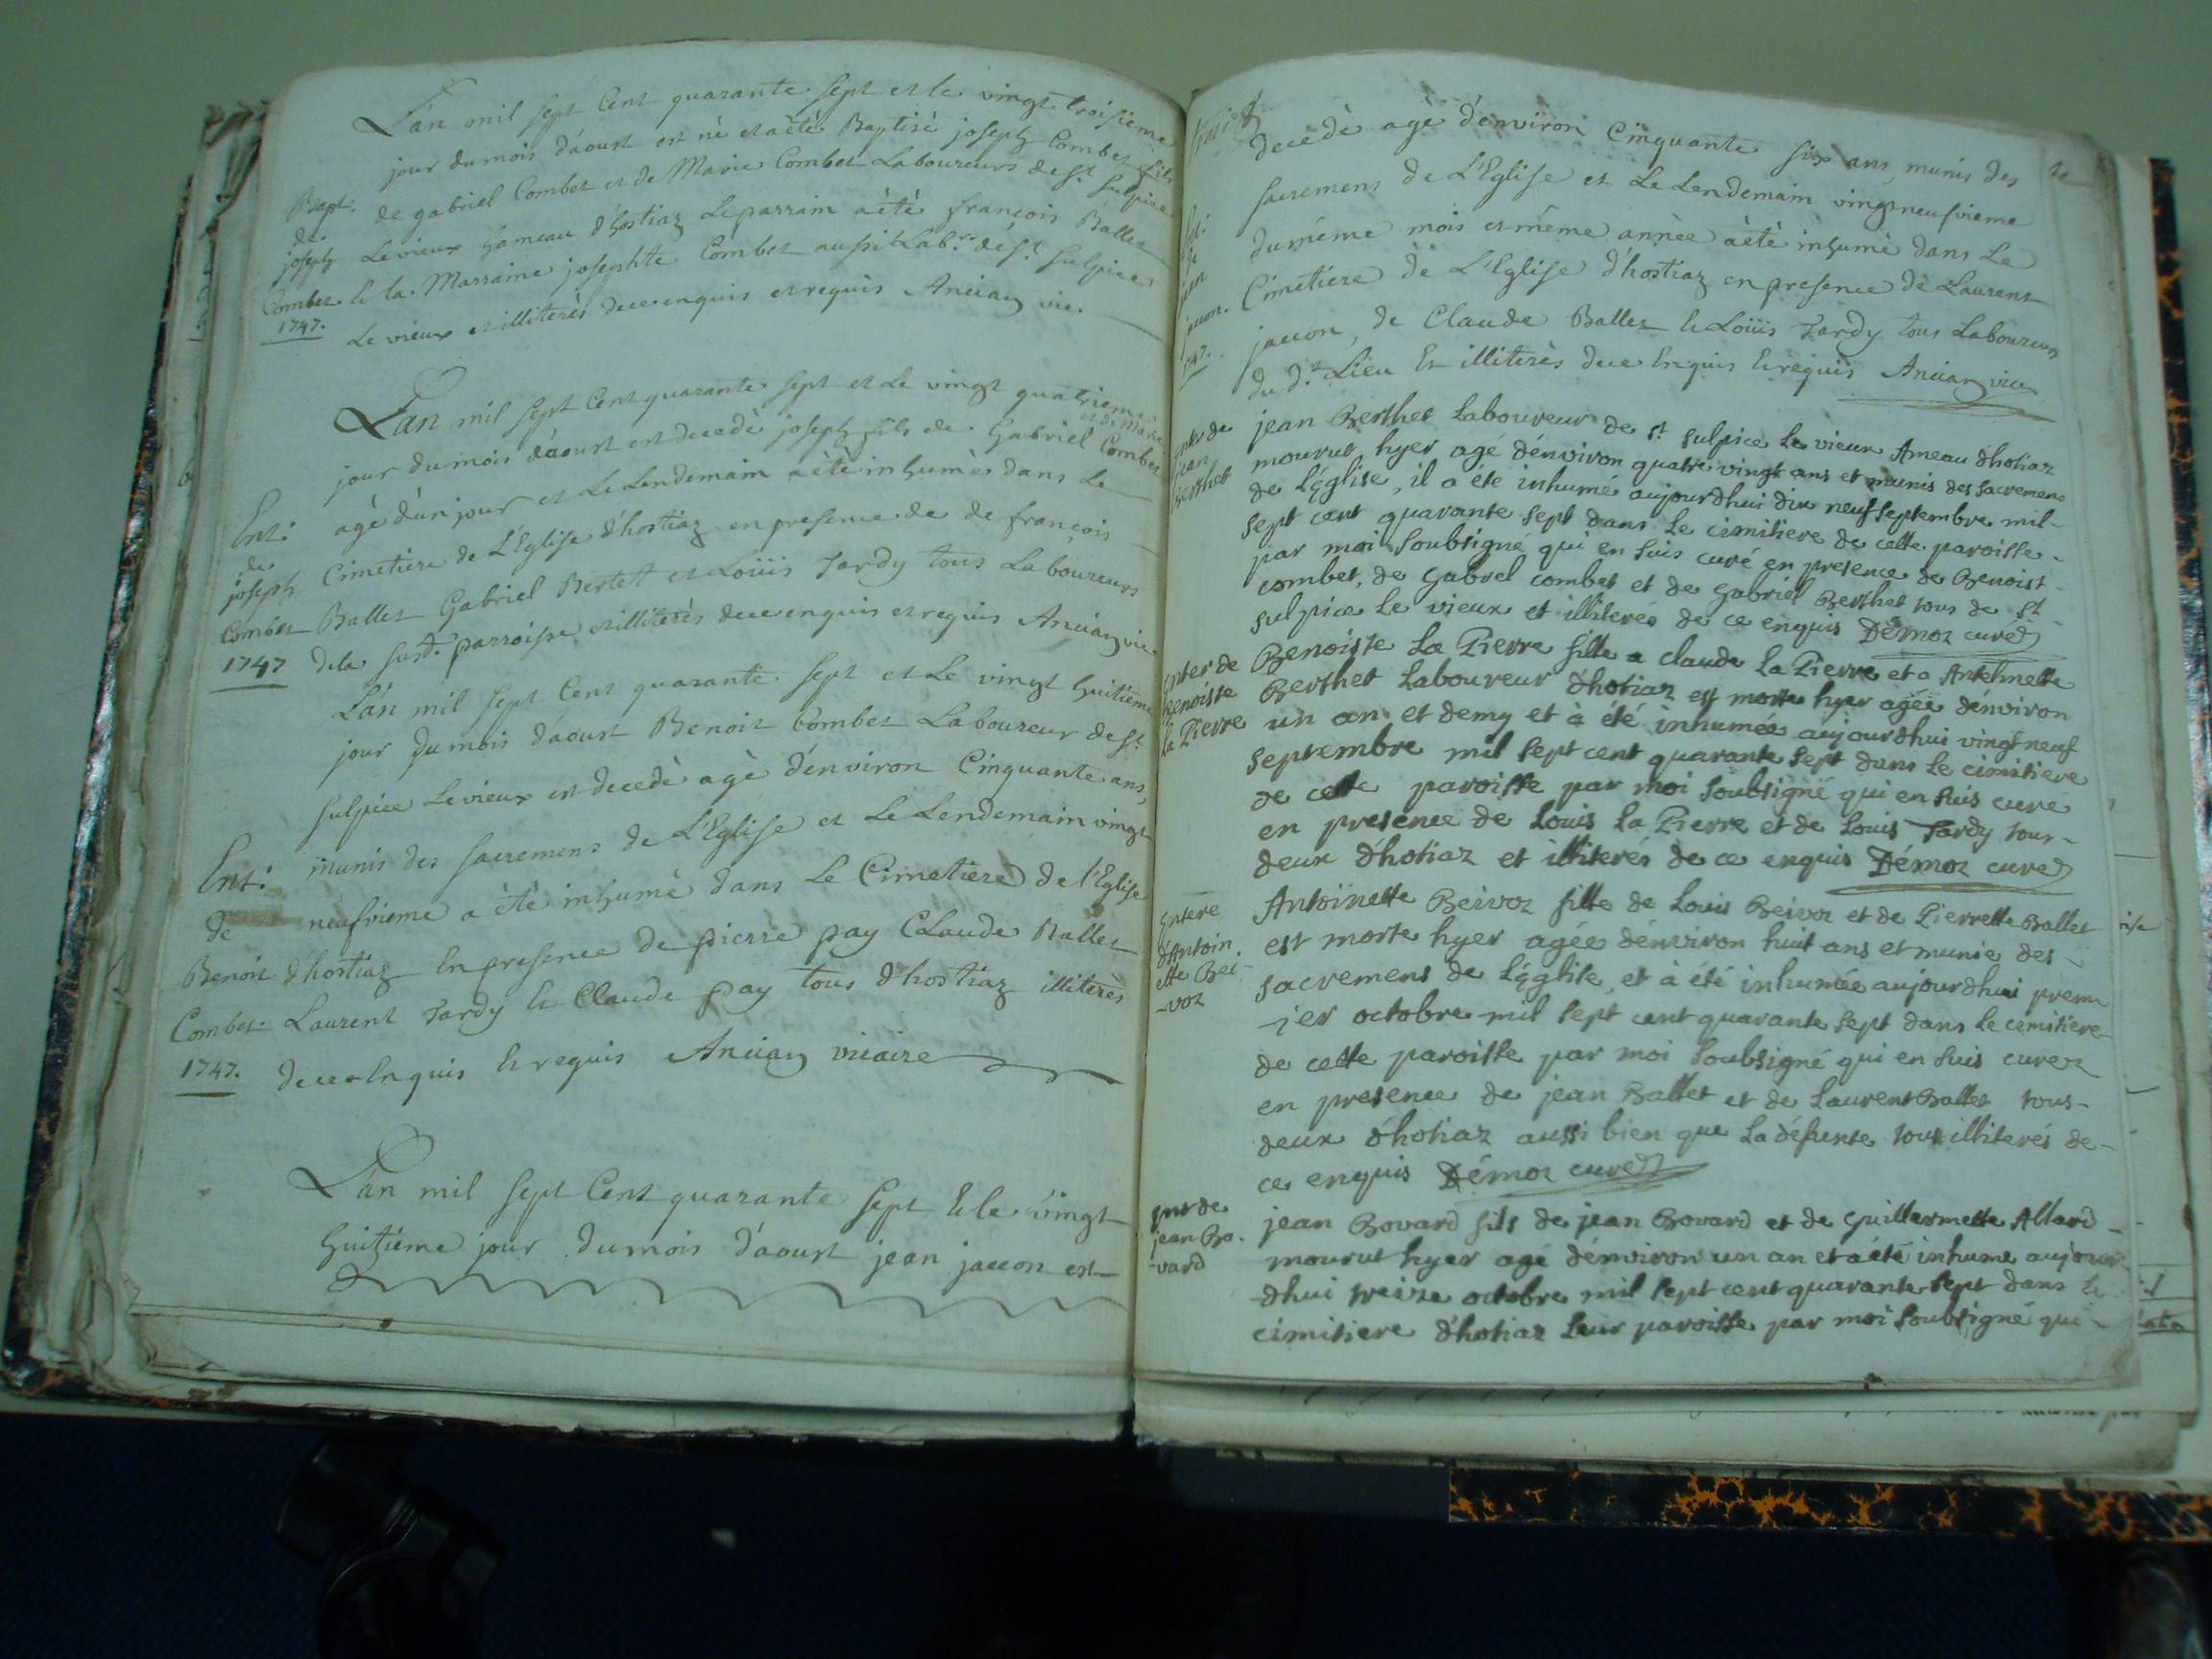 L'an mil sept Cent quarante sept et le vingt troisieme
jour dumois d'aoust est nè et aètè Baptisè joseph Combet fils
de gabriel Combet et de Marie Combet Laboureurs de st. sulpice
Levieux hameau d'hostiaz Leparrain aètè françois Ballet
et la Marraine josephte Combet aussi Labr. de st. sulpice
Le vieux et illiterès dece enquis et requis Ancian vic.
Bapt.
de
joseph
Combet
1747.
L'an mil sept Cent quarante sept et Le vingt quatrieme
jour dumois d'aoust est decedè joseph fils de Gabriel Combet
et de Marie
agè d'un jour et Le Lendemain aètè inhumè dans Le
Cimetiere de L'Eglise d'hostiaz en presence de de françois
Ballet Gabriel Bertet et Loüis Tardy tous Laboureurs
dela susd. parroisse et illiterès dece enquis et requis Ancian vic.
Ent:
de
joseph
Combet
1747
L'an mil sept Cent quarante sept et Le vingt huitieme
jour dumois d'aoust Benoit Combet Laboureur de st.
sulpice Levieux est decedè agè d'environ Cinquante ans,
munis des sacremens de L'Eglise et Le Lendemain vingt
neufvieme a ètè inhumè dans Le Cimetiere de l'Eglise
d'hostiaz En presence de pierre pay Claude Ballet
Laurent Tardy et Claude pay tous d'hostiaz illiterès
dece Enquis et requis Ancian vicaire
Ent:
de
Benoit
Combet
1747.
L'an mil sept Cent quarante sept et le vingt
huitieme jour dumois d'aoust jean jacon est
decedè agè d'environ Cinquante six ans, munis des
sacremens de L'Eglise et Le Lendemain vingtneufvieme
dumême mois et même annèe aètè inhumè dans Le
Cimetiere de L'Eglise d'hostiaz en presence de Laurent
jacon, de Claude Ballet et Loüis Tardy tous Laboureurs
du d.t Lieu Et illiterès dece Enquis et requis Ancian vic
de
jean
jacon.
1747.
jean Berthet laboureur de st. sulpice le vieux Ameau d'hotiaz
mourut hyer agé d'environ quatre vingt ans et munis des sacremens
de L'église, il a été inhumé aujourdhui dix neuf septembre mil-
sept cent quarante sept dans Le cimitiere de cette paroisse-
par moi soubsigné qui en suis curé en presence de Benoist-
combet, de gabriel combet et de gabriel Berthet tous de st.-
sulpice le vieux et illiterés de ce enquis Démoz curé
enter de
jean
Berthet
Benoiste La Pierre fille a claude La Pierre et a Anthelmette
Berthet laboureur d'hotiaz est morte hyer agée d'environ
un an et demy et à été inhumée aujourdhui vingt neuf
septembre mil sept cent quarante sept dans le cimitiere
de cette paroisse par moi soubsigné qui en suis curé
en presence de Louis la Pierre et de Louis Tardy tous-
deux d'hotiaz et illiterés de ce enquis Démoz curé
enter. de
Benoiste
la Pierre
Antoinette Beivoz fille de Louis Beivoz et de Pierrette Ballet
est morte hyer agée d'environ huit ans et munie des-
sacremens de L'église, et à été inhumée aujourdhui prem
-ier octobre mil sept cent quarante sept dans le cimitiere
de cette paroisse par moi soubsigné qui en suis curé
en presence de jean Ballet et de Laurent Ballet tous-
deux d'hotiaz aussi bien que la défunte tous illiterés de-
ce enquis Démoz curé
Entere
d'Antoin
ette Bei-
-voz
jean Bovard fils de jean Bovard et de guillermette Allard-
mourut hyer agé d'environ un an et a été inhumé aujour-
dhui treize octobre mil sept cent quarante sept dans le
cimitiere d'hotiaz leur paroisse par moi soubsigné qui-
ent de
jean Bo-
-vard